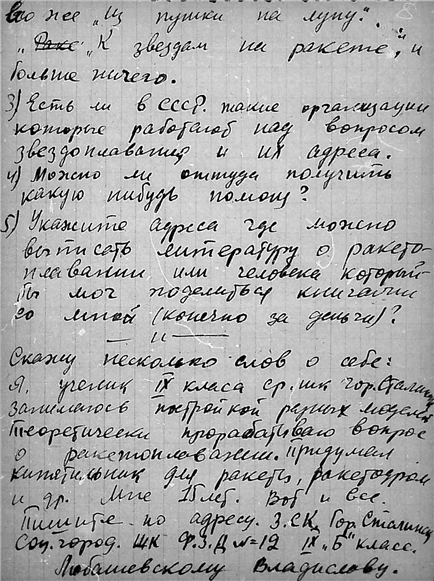 его же „Из пушки на луну."
„К звездам на ракете", и
больше ничего.
3) Есть ли в СССР. такие организации
которые работают над вопросом
звездоплавания и их адреса.
4) Можно ли оттуда получить
какую нибудь помощ?
5) Укажите адреса где можно
выписать литературу о ракето-
плавании или человека который-
бы мог поделиться книгами
со мной (конечно за деньги)?
— " —
Скажу несколько слов о себе:
Я, ученик IX класа ср. шк гор. Сталинск
занимаюсь постройкой разных моделей
Теоретически прорабатываю вопрос
о ракетоплавании. Придумал
кипятильник для ракеты, ракетодром
и др. Мне 15 лет. Вот и все.
Пишите по адресу. З.С.К. Гор. Сталинск
Соц. город. Ф.З.Д №=12 IX „Б" класс.
Любашевскому Владиславу.